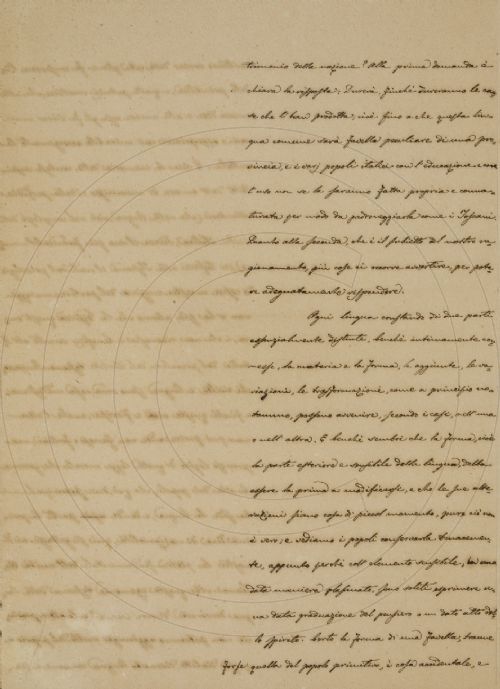 timonio della nazione? Alla prima domanda è
chiara la risposta: Durerà finchè dureranno le cau-
se che l'han prodotta, cioè fino a che questa lin-
gua comune sarà favella peculiare di una pro-
vincia, e i varj popoli italici con l'educazione e con
l'uso non se la saranno fatta propria e conna-
turata per modo da padroneggiarla come i Toscani.
Quanto alla seconda, che è il subietto del nostro ra-
gionamento, più cose ci occorre avvertire, per pote-
re adeguatamente rispondere.
Ogni lingua constando di due parti
essenzialmente distinte, benchè intimamente con-
nesse, la materia e la forma, le aggiunte, le va-
riazioni, le trasformazioni, come a principio no-
tammo, possono avvenire, secondo i casi, nell'una
o nell'altra. E benchè sembri che la forma, cioè
la parte esteriore e sensibile della lingua, debba
essere la prima a modificarsi, e che le sue alte-
razioni siano cosa di piccol momento, pure ciò non
è vero; e vediamo i popoli conservarla tenacemen-
te, appunto perchè coll'elemento sensibile, in una
data maniera plasmato, sono soliti esprimere u-
na data graduazione del pensiero o un dato atto del-
lo spirito. Certo la forma di una favella, tranne
forse quella del popolo primitivo, è cosa accidentale, e